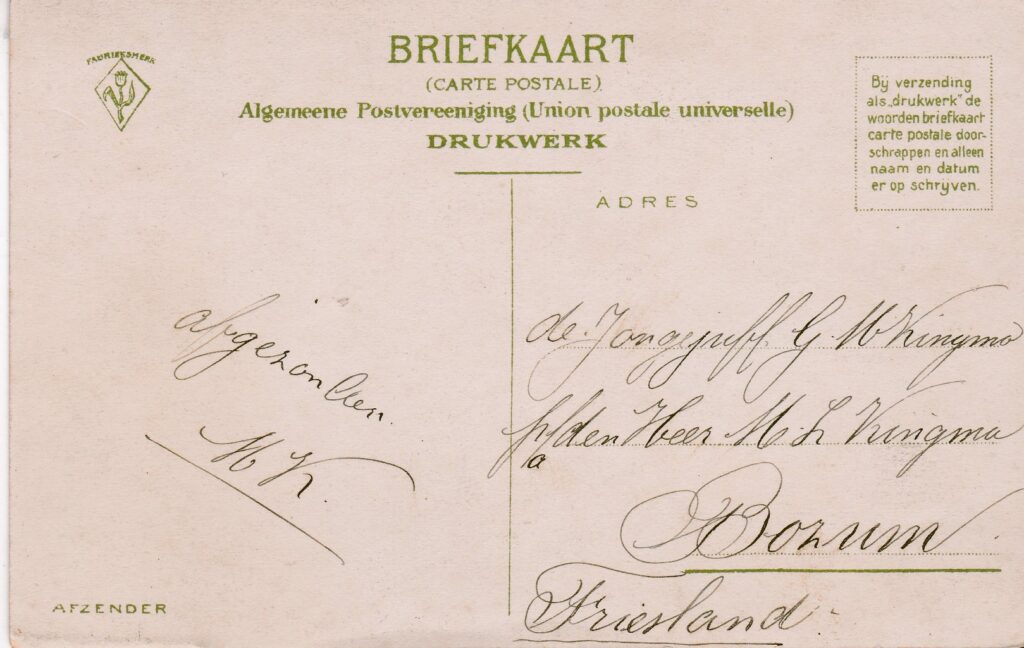 FABRIEKSMERK
BRIEFKAART
(CARTE POSTALE)
Algemeene Postvereeniging (Union postale universelle)
DRUKWERK
Bij verzending
als „drukwerk" de
woorden briefkaart
carte postale door-
schrappen en alleen
naam en datum
er op schrijven.
ADRES
afgezonden
M K.
de Jongejuff G M Kingma
p/a den Heer M L Kingma
Bozum
Friesland
AFZENDER